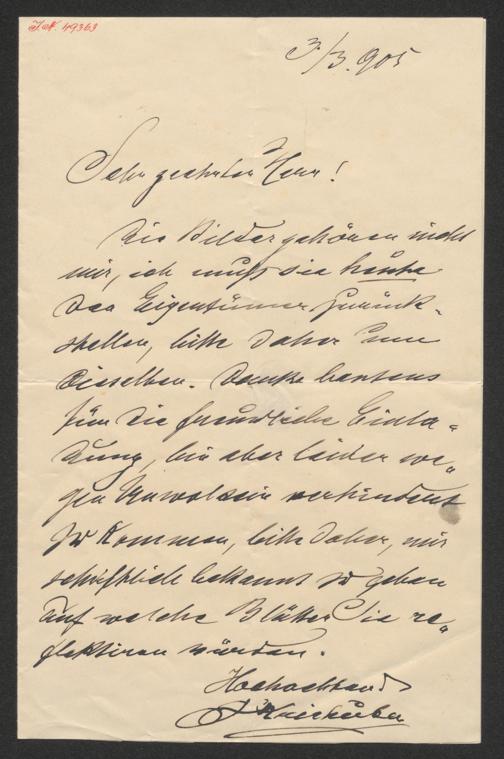 J.N. 49363
3/3. 905
Sehr geehrter Herr!
Die Bilder gehören nicht
mir, ich muß sie heute
dem Eigentümer zurück-
stellen, bitte daher um
dieselben. Danke bestens
für die freundliche Einla-
dung, bin aber leider we-
gen Unwolsein verhindert
zu kommen, bitte daher, mir
schriftlich bekannt zu geben
auf welche Blätter Sie re-
flektiren würden.
Hochachtend
Kriehuber